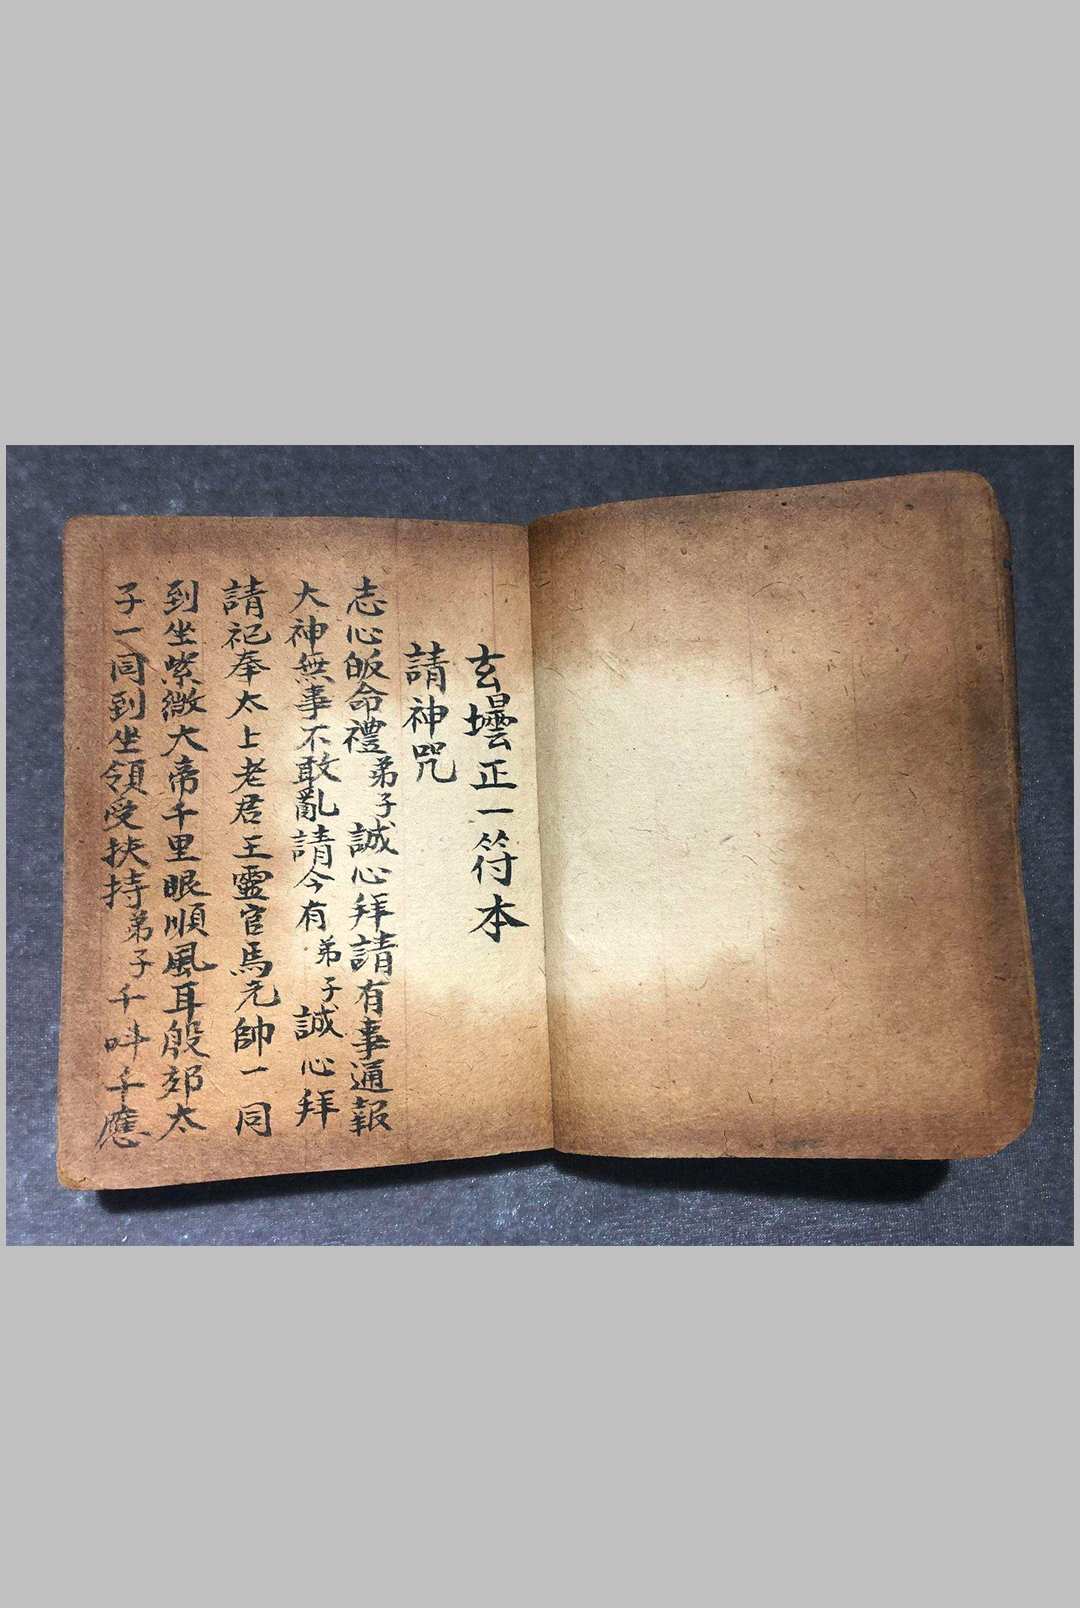 玄壜正一符本
請神咒
志心皈命禮弟子誠心拜請有事通報
大神無事不敢亂請今有弟子誠心拜
請祀奉太上老君王靈官馬元帥一同
到坐紫微大帝千里眼順風耳殷郊太
子一同到坐領受扶持弟子千叫千應